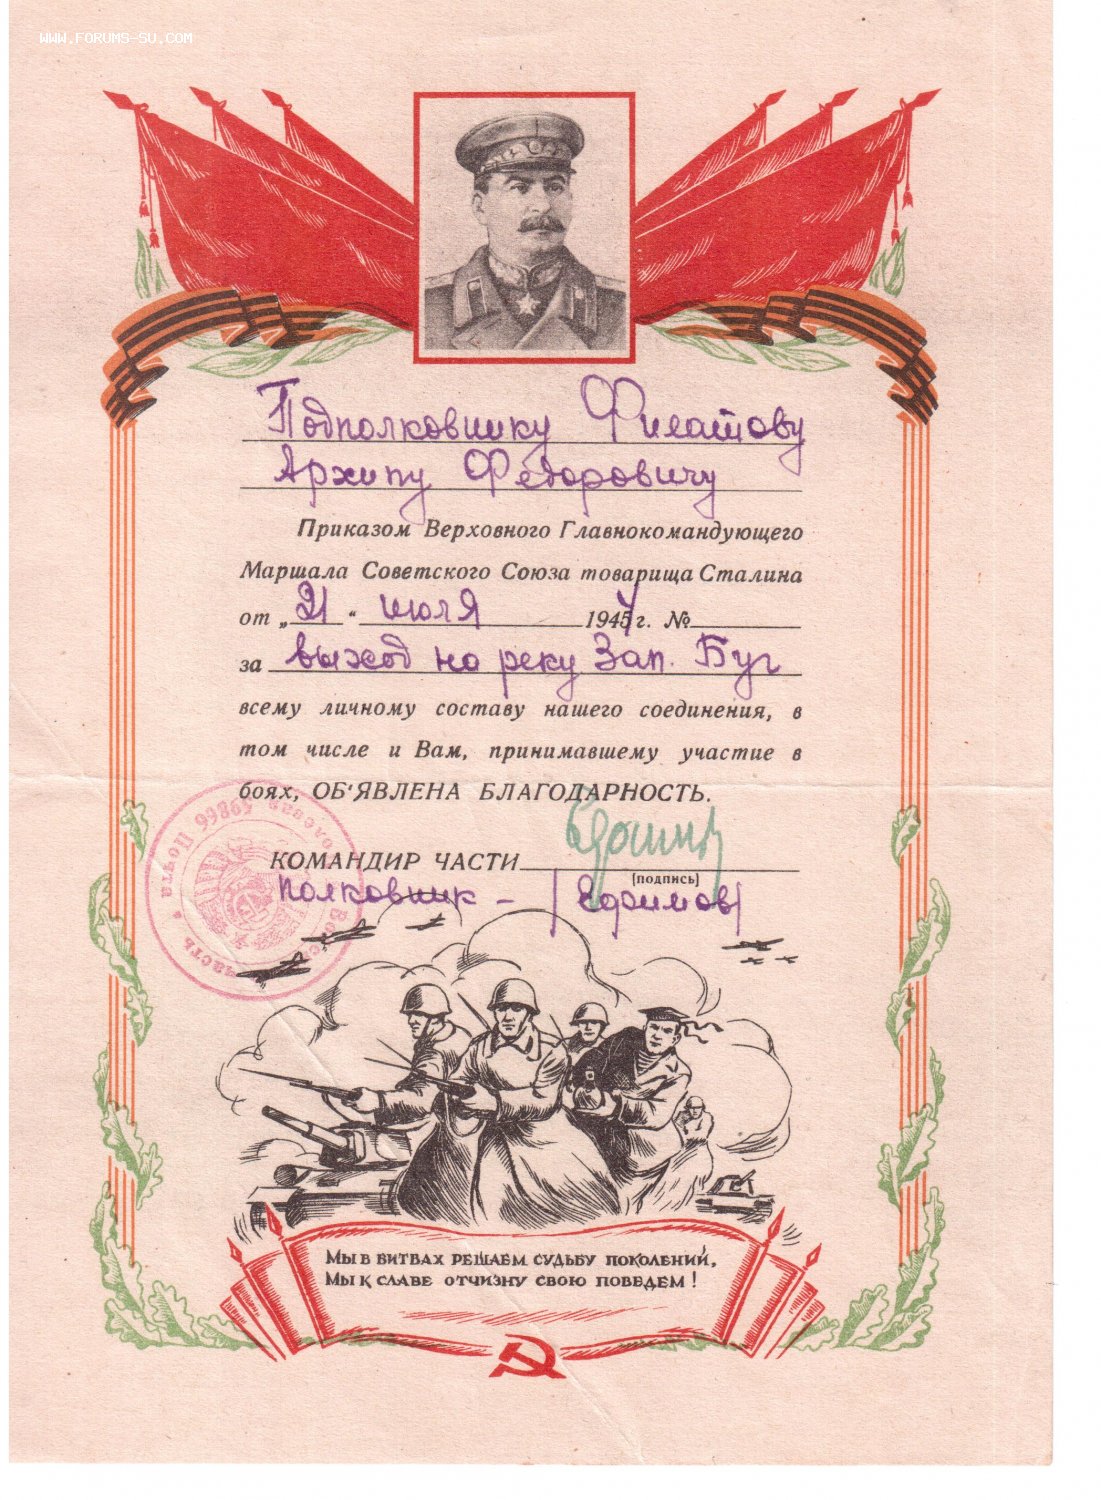 WWW.FORUMS-SU.COM
Подполковнику Филатову
Архипу Федоровичу
Приказом Верховного Главнокомандующего
Маршала Советского Союза товарища Сталина
от „21“ июля 1944 г. №
за выход на реку Зап. Буг
всему личному составу нашего соединения, в
том числе и Вам, принимавшему участие в
боях, ОБ'ЯВЛЕНА БЛАГОДАРНОСТЬ.
КОМАНДИР ЧАСТИ
(подпись)
полковник – /Ефимов/
Полевая Почта
часть 49866
Мы в битвах решаем судьбу поколений,
Мы к славе отчизну свою поведем!